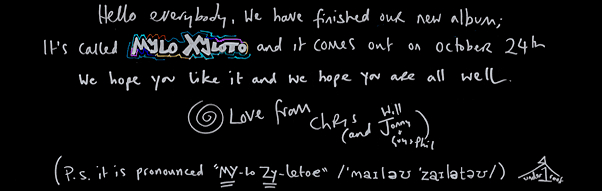 Hello everybody, We have finished our new album;
It's called MYLO XYLOTO and it comes out on october 24th
We hope you like it and we hope you are all well.
Love from Chris (and Will Jonny Guy + Phil)
(P.s. it is pronounced "MY-lo Zy-letoe" /ˈmaɪləʊ ˈzaɪlətəʊ/)